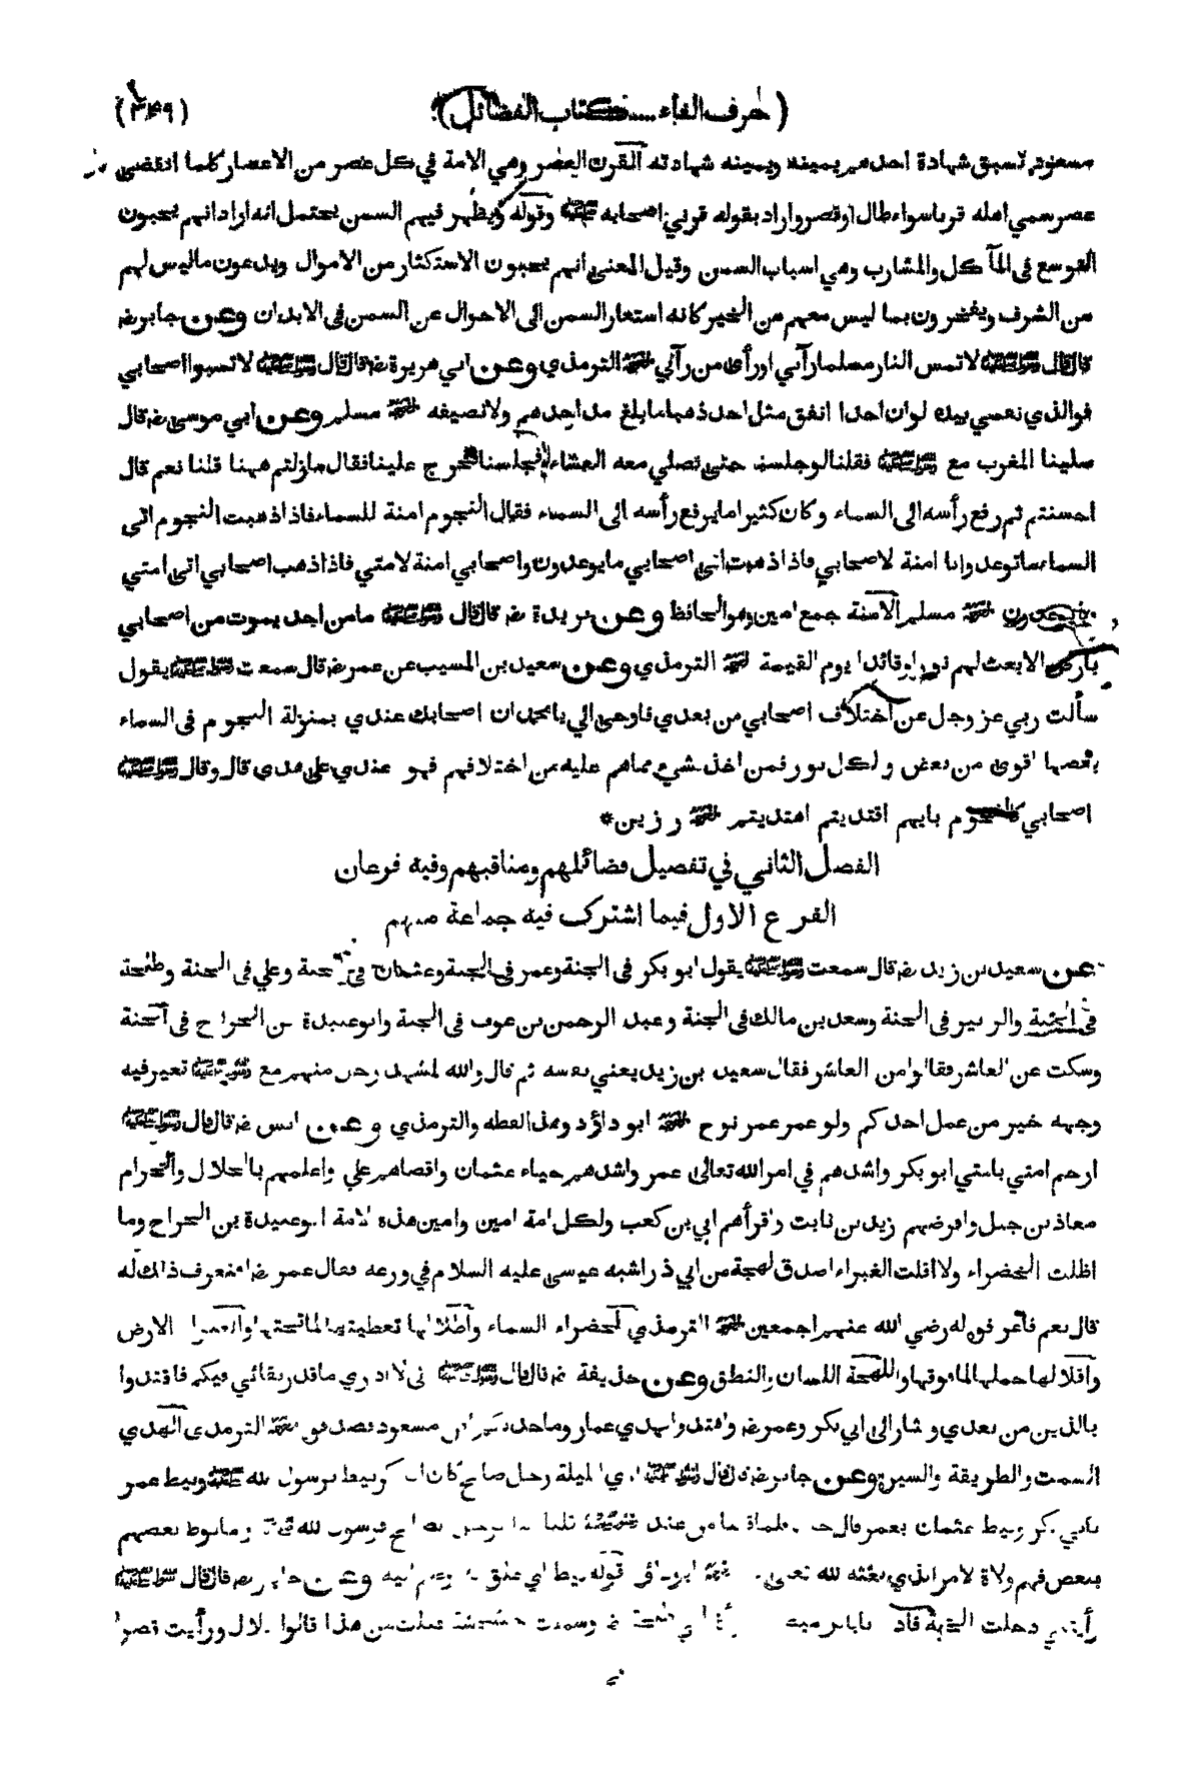 (حرف الفاء .... كتاب الفضائل) (٣٤٩)
مسعود تسبق شهادة احدهم يمينه ويمينه شهادته القرن العصر وهي الامة في كل عصر من الاعصار كلما انقضى
عصر سمي اهله قرنا سواء طال او قصر واراد بقوله قرني اصحابه ﷺ وقوله ويظهر فيهم السمن يحتمل انه اراد انهم يحبون
التوسع فى المآكل والمشارب وهي اسباب السمن وقيل المعنى انهم يحبون الاستكثار من الاموال ويدعون ما ليس لهم
من الشرف ويفخرون بما ليس معهم من الخير كانه استعار السمن الى الاحوال عن السمن فى الابدان وعن جابر رضـ
قال قال رسول الله ﷺ لا تمس النار مسلما رآني او رأى من رآني اخرجه الترمذي وعن ابي هريرة رضـ قال قال رسول الله ﷺ لا تسبوا اصحابي
فوالذي نفسي بيده لو ان احدا انفق مثل احد ذهبا ما بلغ مد احدهم ولا نصيفه اخرجه مسلم وعن ابي موسى رضـ قال
صلينا المغرب مع رسول الله ﷺ فقلنا لو جلسنا حتى نصلي معه العشاء فجلسنا فخرج علينا فقال ما زلتم ههنا قلنا نعم قال
احسنتم ثم رفع رأسه الى السماء وكان كثيرا ما يرفع رأسه الى السماء فقال النجوم امنة للسماء فاذا ذهبت النجوم اتى
السماء ما توعد وانا امنة لاصحابي فاذا ذهبت اتى اصحابي ما يوعدون واصحابي امنة لامتي فاذا ذهب اصحابي اتى امتي
ما يوعدون اخرجه مسلم الامنة جمع امين وهو الحافظ وعن بريدة رضـ قال قال رسول الله ﷺ ما من احد يموت من اصحابي
بارض الا بعث لهم نورا وقائدا يوم القيمة اخرجه الترمذي وعن سعيد بن المسيب عن عمر رضـ قال سمعت رسول الله ﷺ يقول
سألت ربي عز وجل عن اختلاف اصحابي من بعدي فاوحى الي يا محمد ان اصحابك عندي بمنزلة النجوم فى السماء
بعضها اقوى من بعض ولكل نور فمن اخذ بشيء مما هم عليه من اختلافهم فهو عندي على هدى قال وقال رسول الله ﷺ
اصحابي كالنجوم بايهم اقتديتم اهتديتم اخرجه رزين*
الفصل الثاني في تفصيل فضائلهم ومناقبهم وفيه فرعان
الفرع الاول فيما اشترك فيه جماعة منهم
عن سعيد بن زيد رضـ قال سمعت رسول الله ﷺ يقول ابو بكر فى الجنة وعمر فى الجنة وعثمان فى الجنة وعلي فى الجنة وطلحة
فى الجنة والزبير فى الجنة وسعد بن مالك فى الجنة وعبد الرحمن بن عوف فى الجنة وابو عبيدة بن الجراح فى الجنة
وسكت عن العاشر فقالوا من العاشر فقال سعيد بن زيد يعني نفسه ثم قال والله لمشهد رجل منهم مع رسول الله ﷺ تغبر فيه
وجهه خير من عمل احدكم ولو عمر عمر نوح اخرجه ابو داؤد وهذا لفظه والترمذي وعن انس رضـ قال قال رسول الله ﷺ
ارحم امتي بامتي ابو بكر واشدهم في امر الله تعالى عمر واشدهم حياء عثمان واقضاهم علي واعلمهم بالحلال والحرام
معاذ بن جبل وافرضهم زيد بن ثابت واقرأهم ابي بن كعب ولكل امة امين وامين هذه الامة ابو عبيدة بن الجراح وما
اظلت الخضراء ولا اقلت الغبراء اصدق لهجة من ابي ذر اشبه عيسى عليه السلام في ورعه فقال عمر رضـ افنعرف ذالك له
قال نعم فاعرفوه له رضي الله عنهم اجمعين اخرجه الترمذي الخضراء السماء واظلالها تغطيتها لما تحتها والغبراء الارض
واقلالها حملها لما فوقها واللهجة اللسان والنطق وعن حذيفة رضـ قال قال رسول الله ﷺ اني لا ادري ما قدر بقائي فيكم فاقتدوا
بالذين من بعدي واشار الى ابي بكر وعمر رضـ واهتدوا بهدي عمار وما حدثكم ابن مسعود فصدقوه اخرجه الترمذى الهدي
السمت والطريقة والسيرة وعن جابر رضـ قال قال رسول الله ﷺ اري الليلة رجل صالح كان ابا بكر نيط برسول الله ﷺ ونيط عمر
بابي بكر ونيط عثمان بعمر قال جابر فلما قمنا من عند رسول الله ﷺ قلنا اما الرجل الصالح فرسول الله ﷺ واما نوط بعضهم
ببعض فهم ولاة الامر الذي بعثه الله تعالى به اخرجه ابو داؤد قوله نيط اي علق وعن جابر رضـ قال قال رسول الله ﷺ
رأيتني دخلت الجنة فاذا انا بالرميصاء امرأة ابي طلحة رضـ وسمعت خشخشة فقلت من هذا قالوا بلال ورأيت قصرا